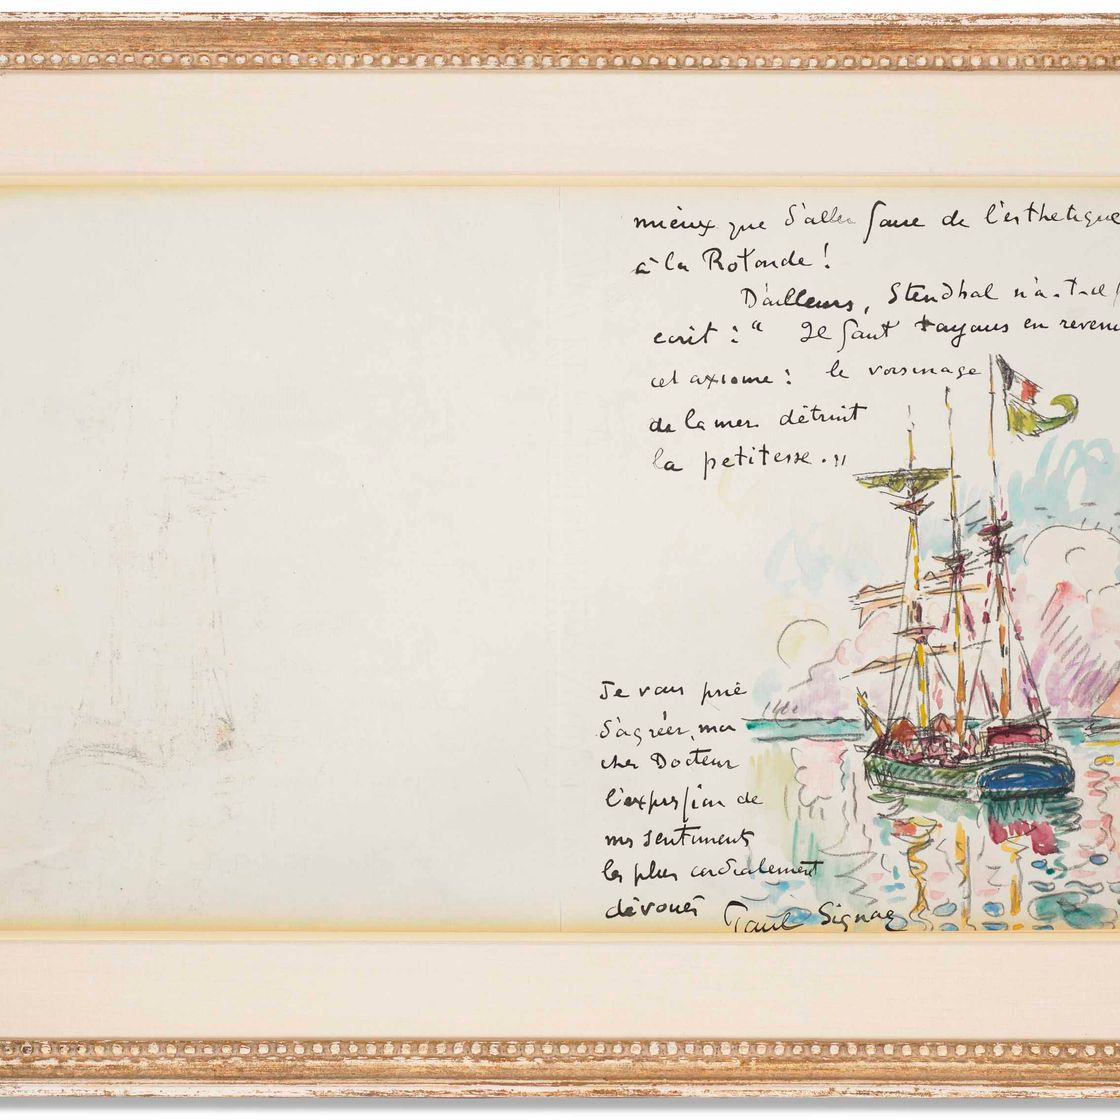 mieux que d'aller faire de l'esthetique
à la Rotonde !
D'ailleurs, Stendhal n'a-t-il
ecrit : " Il faut toujours en revenir
cet axiome : le voisinage
de la mer détruit
la petitesse . "
Je vous prie
d'agréer, mon
cher Docteur
l'expression de
mes sentiments
les plus cordialement
dévoués Paul Signac